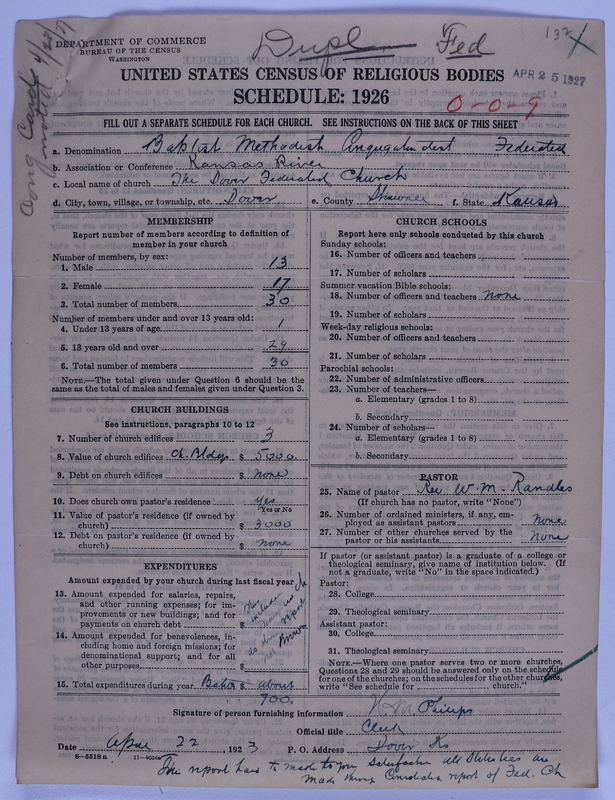 DEPARTMENT OF COMMERCE
BUREAU OF THE CENSUS
WASHINGTON
Dupl
Fed
132
UNITED STATES CENSUS OF RELIGIOUS BODIES
APR 25 1927
SCHEDULE: 1926
0-0-9
FILL OUT A SEPARATE SCHEDULE FOR EACH CHURCH. SEE INSTRUCTIONS ON THE BACK OF THIS SHEET
a. Denomination Baptist Methodist Federated
b. Association or Conference Kansas River
c. Local name of church The Dover Federated Church
d. City, town, village, or township, etc. Dover e. County Shawnee f. State Kansas
MEMBERSHIP
Report number of members according to definition of
member in your church
Number of members, by sex:
1. Male 13
2. Female 17
3. Total number of members 30
Number of members under and over 13 years old:
4. Under 13 years of age 1
5. 13 years old and over 29
6. Total number of members 30
NOTE.—The total given under Question 6 should be
same as the total of males and females given under Question 3.
CHURCH BUILDINGS
See instructions, paragraphs 10 to 12
7. Number of church edifices 3
8. Value of church edifices Ch. Bldgs $ 5000
9. Debt on church edifices $ None
10. Does church own pastor's residence yes
Yes or No
11. Value of pastor's residence (if owned by
church) $ 3000
12. Debt on pastor's residence (if owned by
church) $ None
EXPENDITURES
Amount expended by your church during last fiscal year
13. Amount expended for salaries, repairs,
and other running expenses; for im-
provements or new buildings; and for
payments on church debt $
14. Amount expended for benevolences, in-
cluding home and foreign missions; for
denominational support; and for all
other purposes $
15. Total expenditures during year about
700.
CHURCH SCHOOLS
Report here only schools conducted by this church
Sunday schools:
16. Number of officers and teachers
17. Number of scholars
Summer vacation Bible schools:
18. Number of officers and teachers None
19. Number of scholars
Week-day religious schools:
20. Number of officers and teachers
21. Number of scholars
Parochial schools:
22. Number of administrative officers
23. Number of teachers—
a. Elementary (grades 1 to 8)
b. Secondary
24. Number of scholars—
a. Elementary (grades 1 to 8)
b. Secondary
PASTOR
25. Name of pastor Rev W. M. Randles
(If church has no pastor, write "None")
26. Number of ordained ministers, if any, em-
ployed as assistant pastors None
27. Number of other churches served by the
pastor or his assistants None
If pastor (or assistant pastor) is a graduate of a college or
theological seminary, give name of institution below. (If
not a graduate, write "No" in the space indicated.)
Pastor:
28. College
29. Theological seminary
Assistant pastor:
30. College
31. Theological seminary
NOTE.—Where one pastor serves two or more churches,
Questions 28 and 29 should be answered only on the schedule
for one of the churches; on the schedules for the other churches,
write "See schedule for church."
Signature of person furnishing information Philips
Official title Clerk
Date April 22, 1923 P. O. Address Dover Ks
8—5518a 11—9034
The report has to made to your all Statistics are
made through report of Fed. Ch